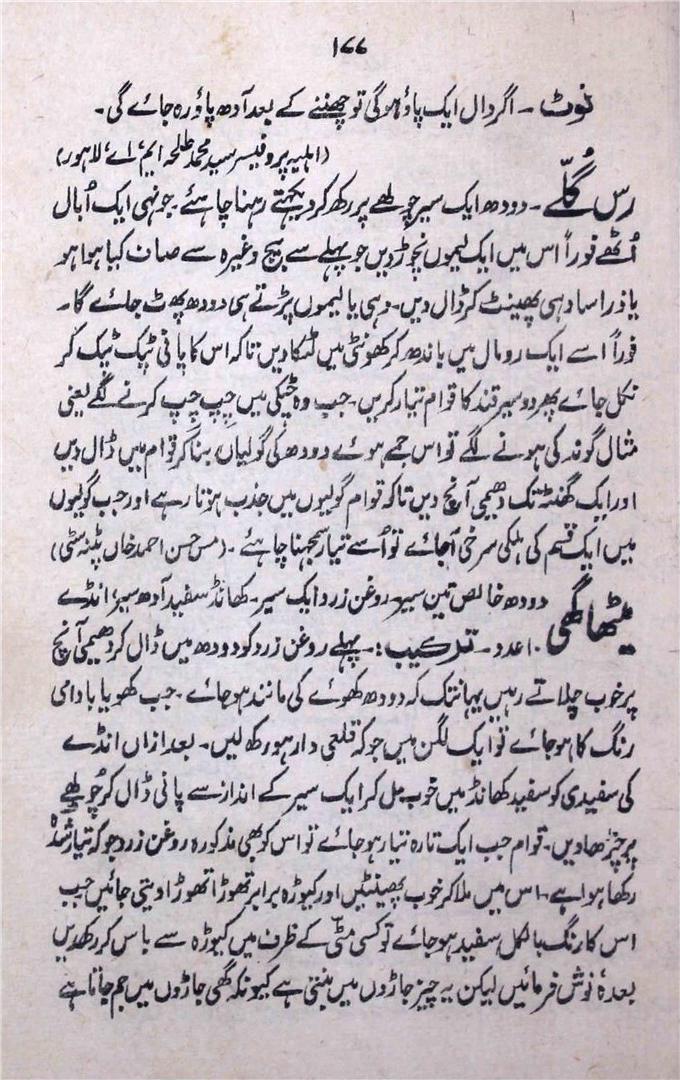 ۱۷۷
نوٹ - اگر دال ایک پاؤ ہوگی تو چھننے کے بعد آدھ پاؤ رہ جائے گی -
(اہلیہ پروفیسر سید محمد طلحہ ایم، اے، لاہور)
رس گُلّے - دودھ ایک سیر چولھے پر رکھ کر دیکھتے رہنا چاہئے - جونہی ایک اُبال
اُٹھے فوراً اس میں ایک لیموں نچوڑ دیں جو پہلے سے بیج وغیرہ سے صاف کیا ہوا ہو
یا ذرا سا دہی پھینٹ کر ڈال دیں - دہی یا لیموں پڑتے ہی دودھ پھٹ جائے گا -
فوراً اسے ایک رومال میں باندھ کر کھونٹی میں لٹکا دیں تاکہ اس کا پانی ٹپک ٹپک کر
نکل جائے پھر دو سیر قند کا قوام تیار کریں - جب وہ چٹکی میں چِپ چِپ کرنے لگے یعنی
مثال گوند کی ہونے لگے تو اس جمے ہوئے دودھ کی گولیاں بنا کر قوام میں ڈال دیں
اور ایک گھنٹہ تک دھیمی آنچ دیں تاکہ قوام گولیوں میں جذب ہوتا رہے اور جب گولیوں
میں ایک قسم کی ہلکی سرخی آجائے تو اُسے تیار سمجھنا چاہئے - (مس حسن احمد خاں پٹنہ سٹی)
میٹھا گھی دودھ خالص تین سیر - روغن زرد ایک سیر - کھانڈ سفید آدھ سیر، انڈے
۱۰ عدد - ترکیب :- پہلے روغن زرد کو دودھ میں ڈال کر دھیمی آنچ
پر خوب چلاتے رہیں یہانتک کہ دودھ کھوئے کی مانند ہو جائے - جب کھویا بادامی
رنگ کا ہو جائے تو ایک لگن میں جو کہ قلعی دار ہو رکھ لیں - بعد ازاں انڈے
کی سفیدی کو سفید کھانڈ میں خوب مل کر ایک سیر کے انداز سے پانی ڈال کر چولھے
پر چڑھا دیں - قوام جب ایک تارہ تیار ہو جائے تو اس کو بھی مذکورہ روغن زرد جو کہ تیار شدہ
رکھا ہوا ہے - اس میں ملا کر خوب پھینٹیں اور کیوڑہ برابر تھوڑا تھوڑا دیتی جائیں جب
اس کا رنگ بالکل سفید ہو جائے تو کسی مٹی کے ظرف میں کیوڑہ سے باس کر رکھدیں
بعدہٗ نوش فرمائیں لیکن یہ چیز جاڑوں میں بنتی ہے کیونکہ گھی جاڑوں میں جم جاتا ہے